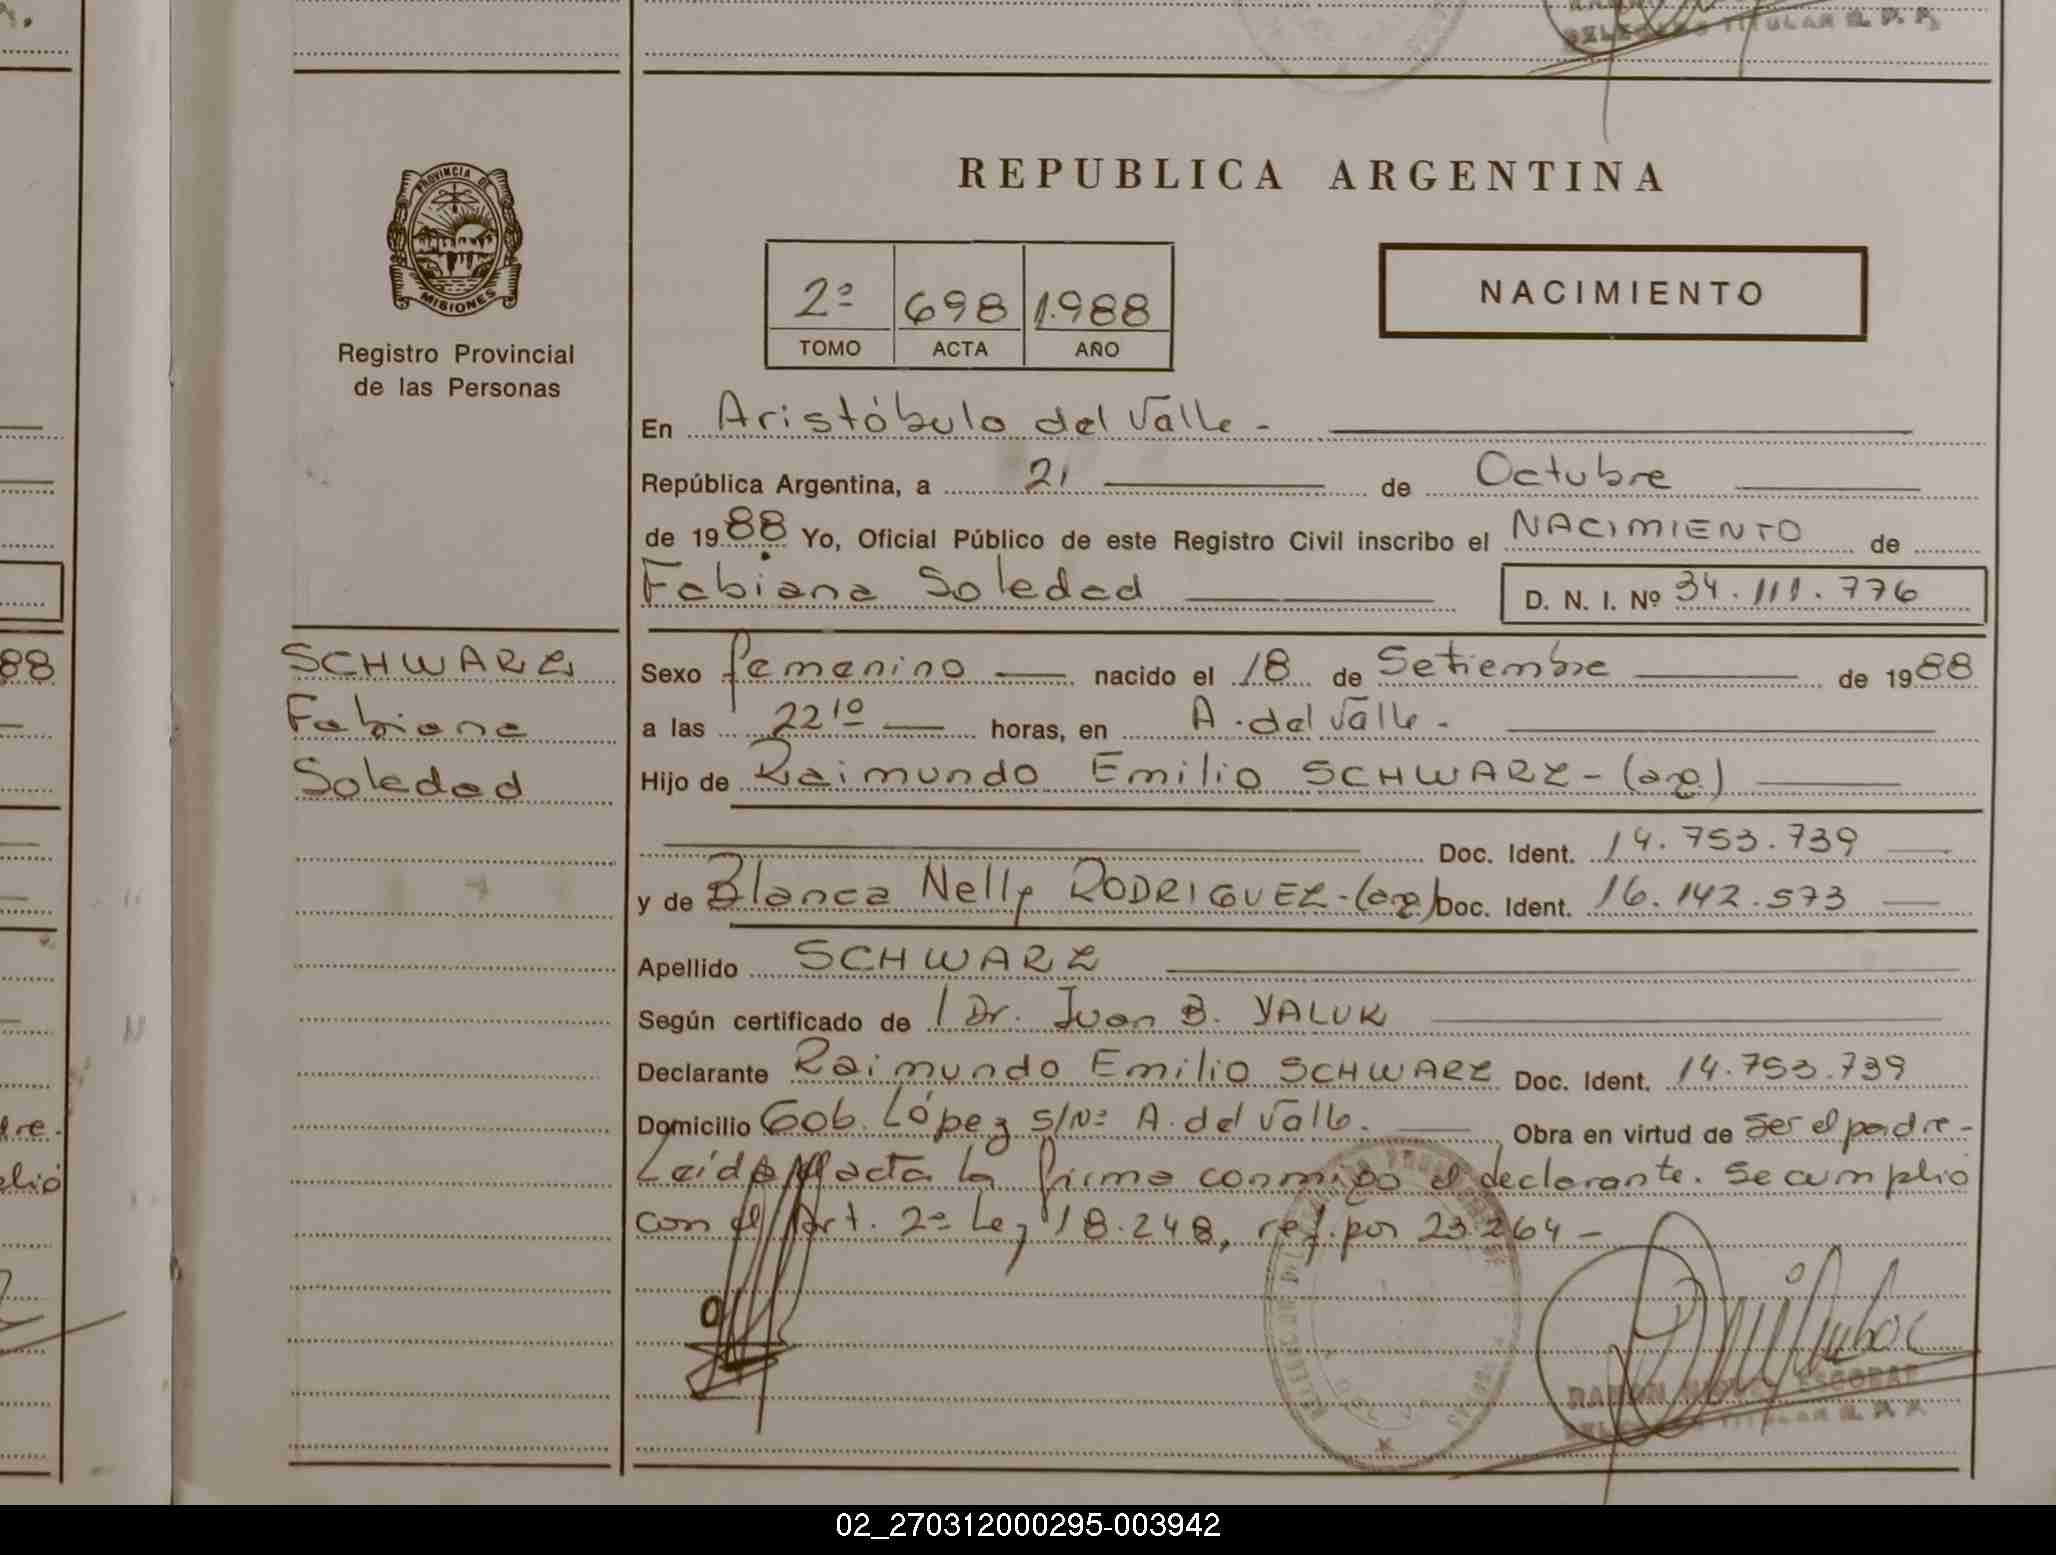 DELEGADO TITULAR R. P. P.
PROVINCIA DE
MISIONES
Registro Provincial
de las Personas
REPUBLICA ARGENTINA
2º 698 1.988
TOMO ACTA AÑO
NACIMIENTO
En Aristóbulo del Valle -
República Argentina, a 21 de Octubre
de 1988 Yo, Oficial Público de este Registro Civil inscribo el NACIMIENTO de
Fabiana Soledad D. N. I. Nº 34.111.776
SCHWARZ
Fabiana
Soledad
Sexo femenino nacido el 18 de Setiembre de 1988
a las 22¹⁰ horas, en A. del Valle -
Hijo de Raimundo Emilio SCHWARZ - (arg)
Doc. Ident. 14.753.739
y de Blanca Nelly RODRIGUEZ - (arg) Doc. Ident. 16.142.573
Apellido SCHWARZ
Según certificado de / Dr. Juan B. YALUK
Declarante Raimundo Emilio SCHWARZ Doc. Ident. 14.753.739
Domicilio Gob. López s/Nº A. del Valle. Obra en virtud de ser el padre -
Leída el acta la firma conmigo el declarante. Se cumplió
con el Art. 2º Ley 18.248, ref. por 23.264 -
88
dre.
plió
RAMON ESCOBAR
DELEGADO TITULAR R. P. P.
02_270312000295-003942